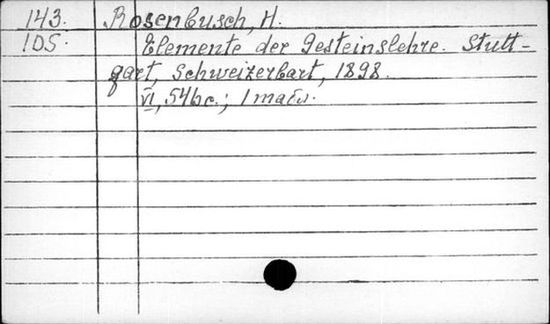 143. Rosenbusch, H.
105. Elemente der Gesteinslehre. Stutt-
gart, Schweizerbart, 1898.
VI, 546 c.; 1 табл.